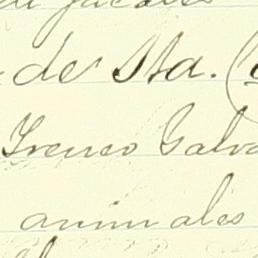 de Sta. (
Ireneo Galva
animales